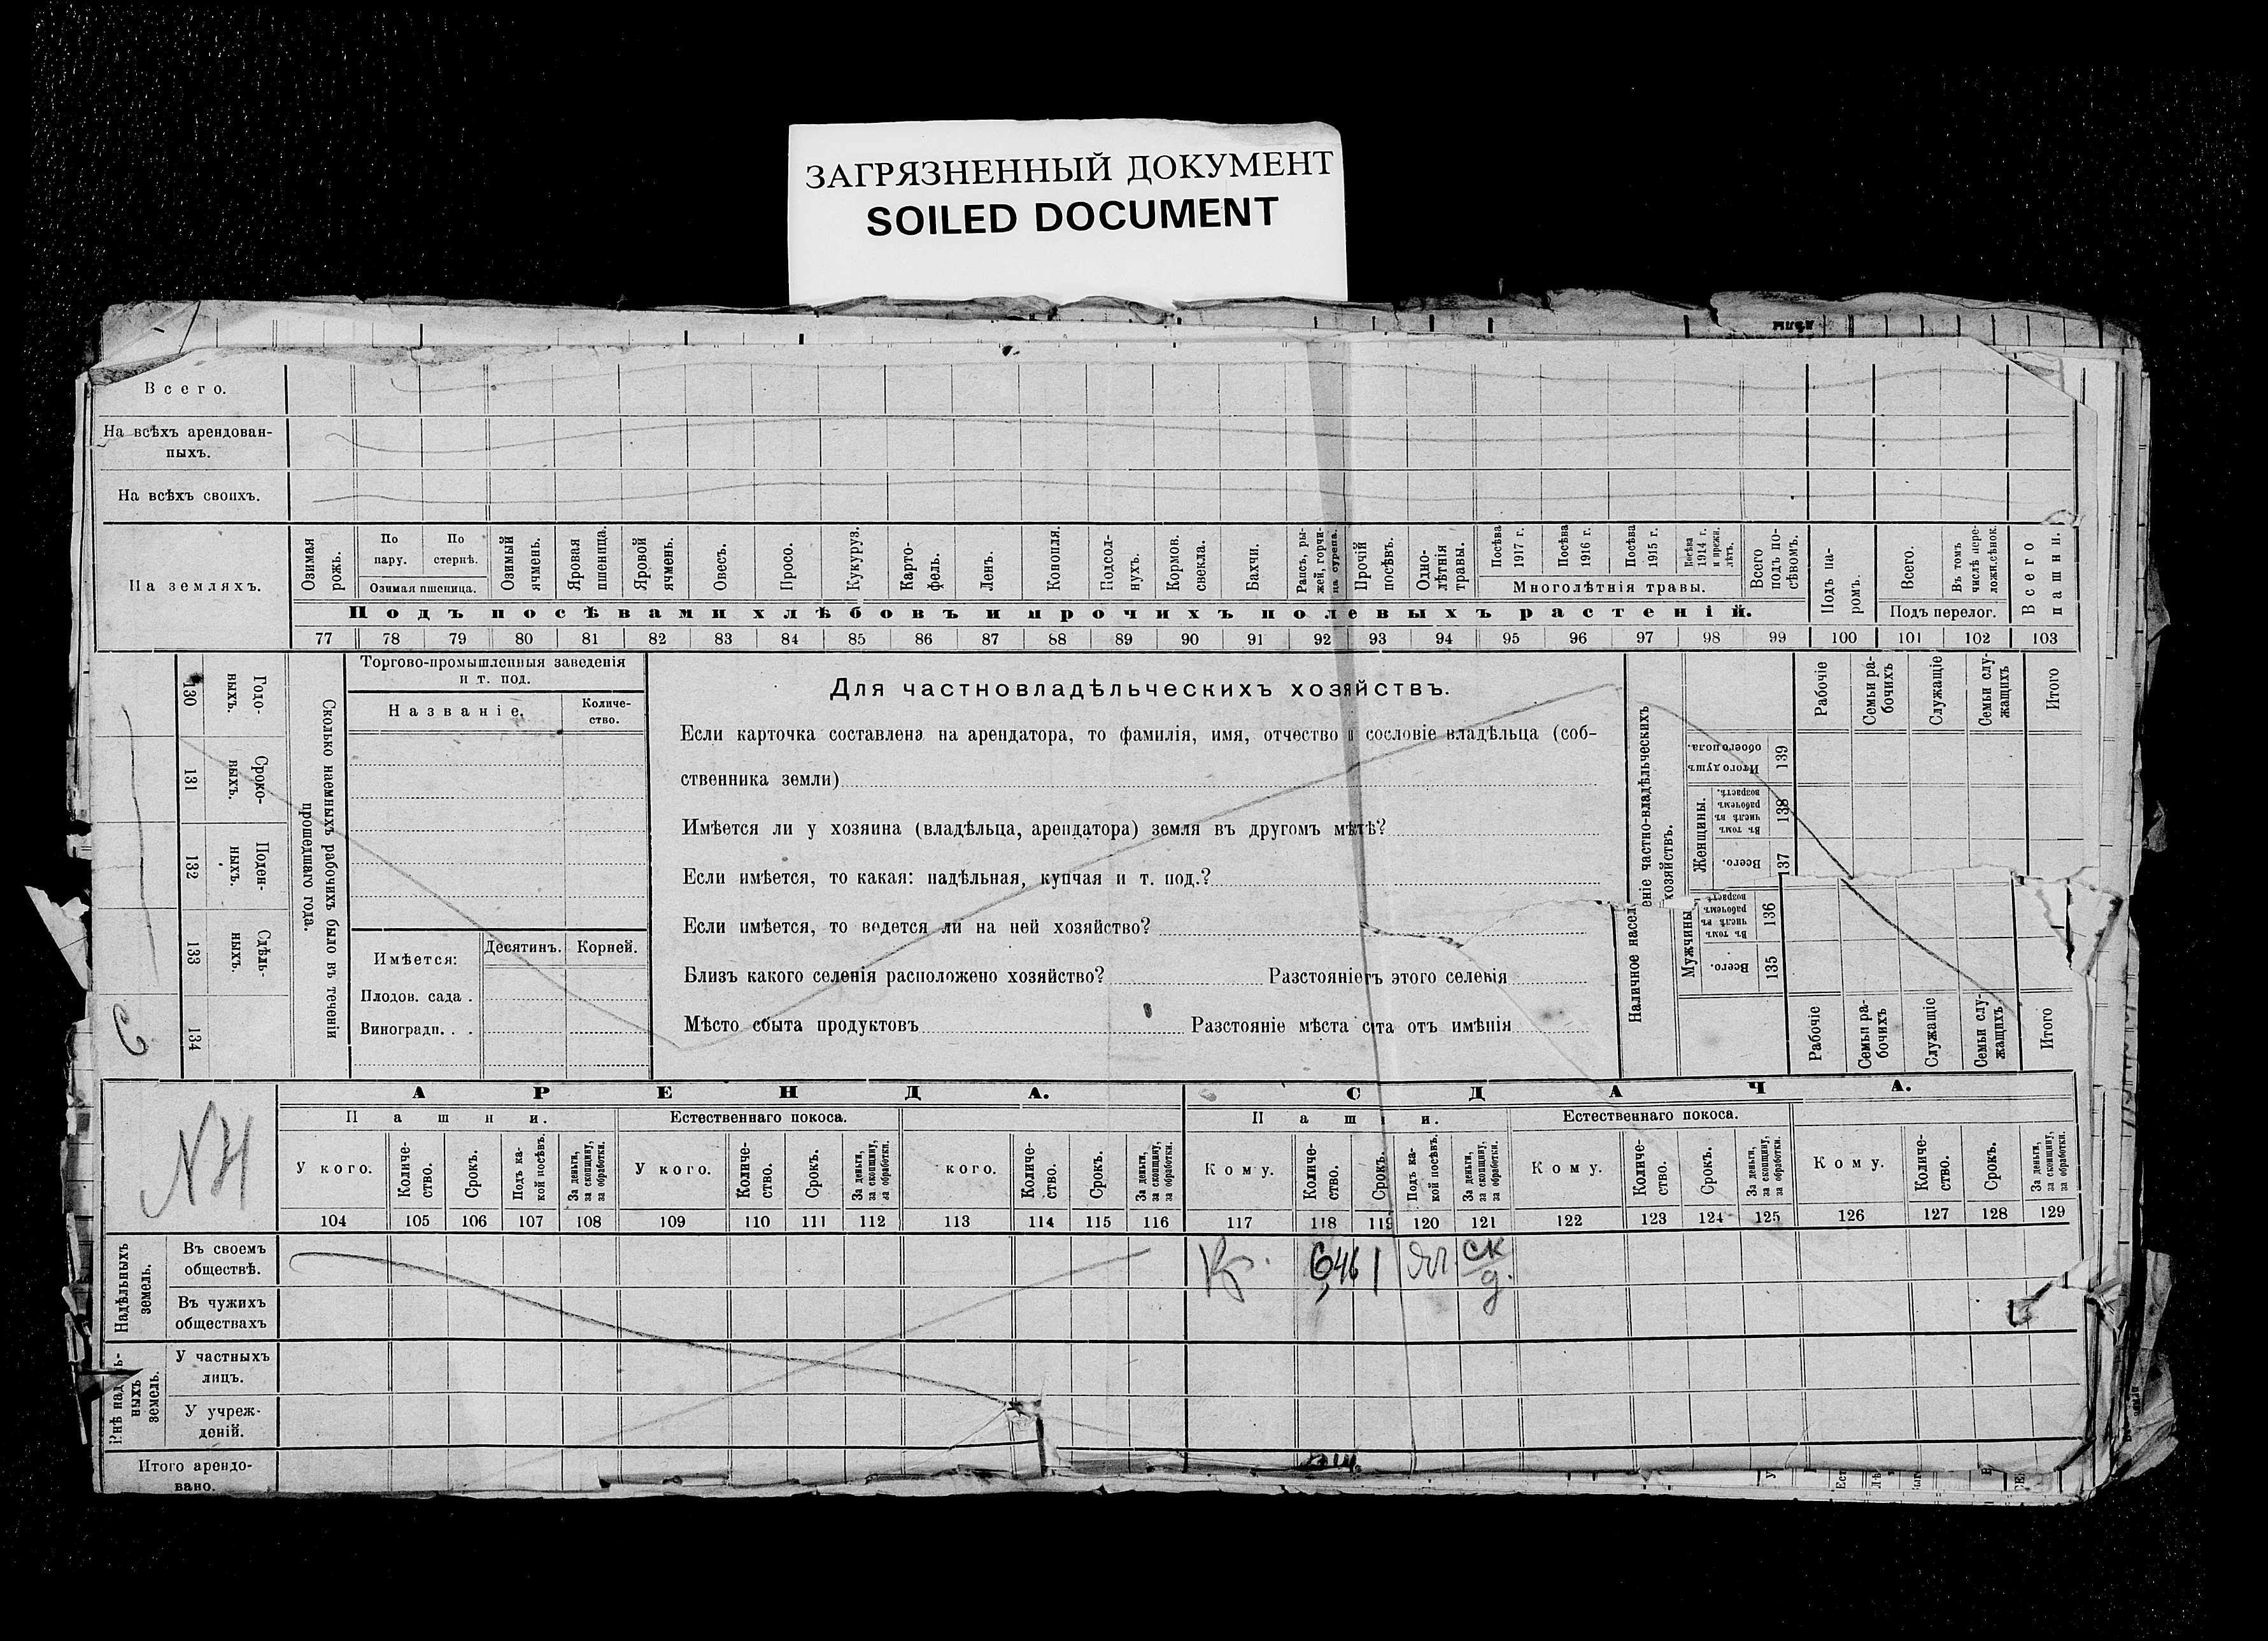 ЗАГРЯЗНЕННЫЙ ДОКУМЕНТ
SOILED DOCUMENT
Всего.
На всѣхъ арендован-
ныхъ.
На всѣхъ своихъ.
На земляхъ.
Озимая рожь.
По пару.
По стернѣ.
Озимая пшеница.
Озимый ячмень.
Яровая пшеница.
Яровой ячмень.
Овесъ.
Просо.
Кукуруз.
Карто-
фель.
Ленъ.
Конопля.
Подсол-
нухъ.
Кормов. свекла.
Бахчи.
Рапсъ, ры-
жей, горчи-
Прочій посѣвъ.
Одно-
лѣтнія травы.
Посѣва 1917 г.
Посѣва 1916 г.
Посѣва 1915 г.
Посѣва 1914 г. и прежн. лѣтъ.
Многолѣтнія травы.
Всего подъ по-
сѣвомъ.
Подъ па-
ромъ.
Всего.
Въ томъ числѣ пере-
Подъ перелог.
Всего пашни.
Подъ посѣвами хлѣбовъ и прочихъ полевыхъ растеній.
77 78 79 80 81 82 83 84 85 86 87 88 89 90 91 92 93 94 95 96 97 98 99 100 101 102 103
130 Годо-
ныхъ.
131 Сроко-
ныхъ.
132 Поден-
ныхъ.
133 Сдѣль-
ныхъ.
134
Сколько наемныхъ рабочихъ было въ теченіи
прошедшаго года.
Торгово-промышленныя заведенія
и т. под.
Названіе.
Количе-
ство.
Имѣется:
Десятинъ. Корней.
Плодов. сада .
Виноградн. . .
Для частновладѣльческихъ хозяйствъ.
Если карточка составлена на арендатора, то фамилія, имя, отчество и сословіе владѣльца (соб-
ственника земли)
Имѣется ли у хозяина (владѣльца, арендатора) земля въ другомъ мѣстѣ?
Если имѣется, то какая: надѣльная, купчая и т. под.?
Если имѣется, то ведется ли на ней хозяйство?
Близъ какого селенія расположено хозяйство? Разстояніе этого селенія
Мѣсто сбыта продуктовъ Разстояніе мѣста отъ имѣнія
Наличное частно-владѣльческихъ
хозяйствъ.
Рабочіе
Семьи ра-
бочихъ
Служащіе
Семьи слу-
жащихъ
Итого
Итого душъ обоего пола. 139
Женщины.
Въ томъ числѣ въ рабочемъ возрастѣ. 138
Всего. 137
Мужчины
Въ томъ числѣ въ рабочемъ возрастѣ 136
Всего. 135
Рабочіе
Семьи ра-
бочихъ
Служащіе
Семьи слу-
жащихъ
Итого
АРЕНДА.
СДАЧА.
Пашни.
Естественнаго покоса.
Пашни.
Естественнаго покоса.
У кого.
Количе-
ство.
Срокъ.
Подъ ка-
кой посѣвъ.
За деньги, за скопщину, за обработки.
У кого.
Количе-
ство.
Срокъ.
За деньги, за скопщину, за обработки.
кого.
Количе-
ство.
Срокъ.
За деньги, за скопщину, за обработки.
Кому.
Количе-
ство.
Срокъ.
Подъ ка-
кой посѣвъ.
За деньги, за скопщину, за обработки.
Кому.
Количе-
ство.
Срокъ.
За деньги, за скопщину, за обработки.
Кому.
Количе-
ство.
Срокъ.
За деньги, за скопщину, за обработки.
104 105 106 107 108 109 110 111 112 113 114 115 116 117 118 119 120 121 122 123 124 125 126 127 128 129
Надѣльныхъ земель.
Въ своемъ
обществѣ.
Кр. 6,46 1 ск д.
Въ чужихъ
обществахъ
земель.
У частныхъ
лицъ.
У учреж-
деній.
Итого арендо-
вано.